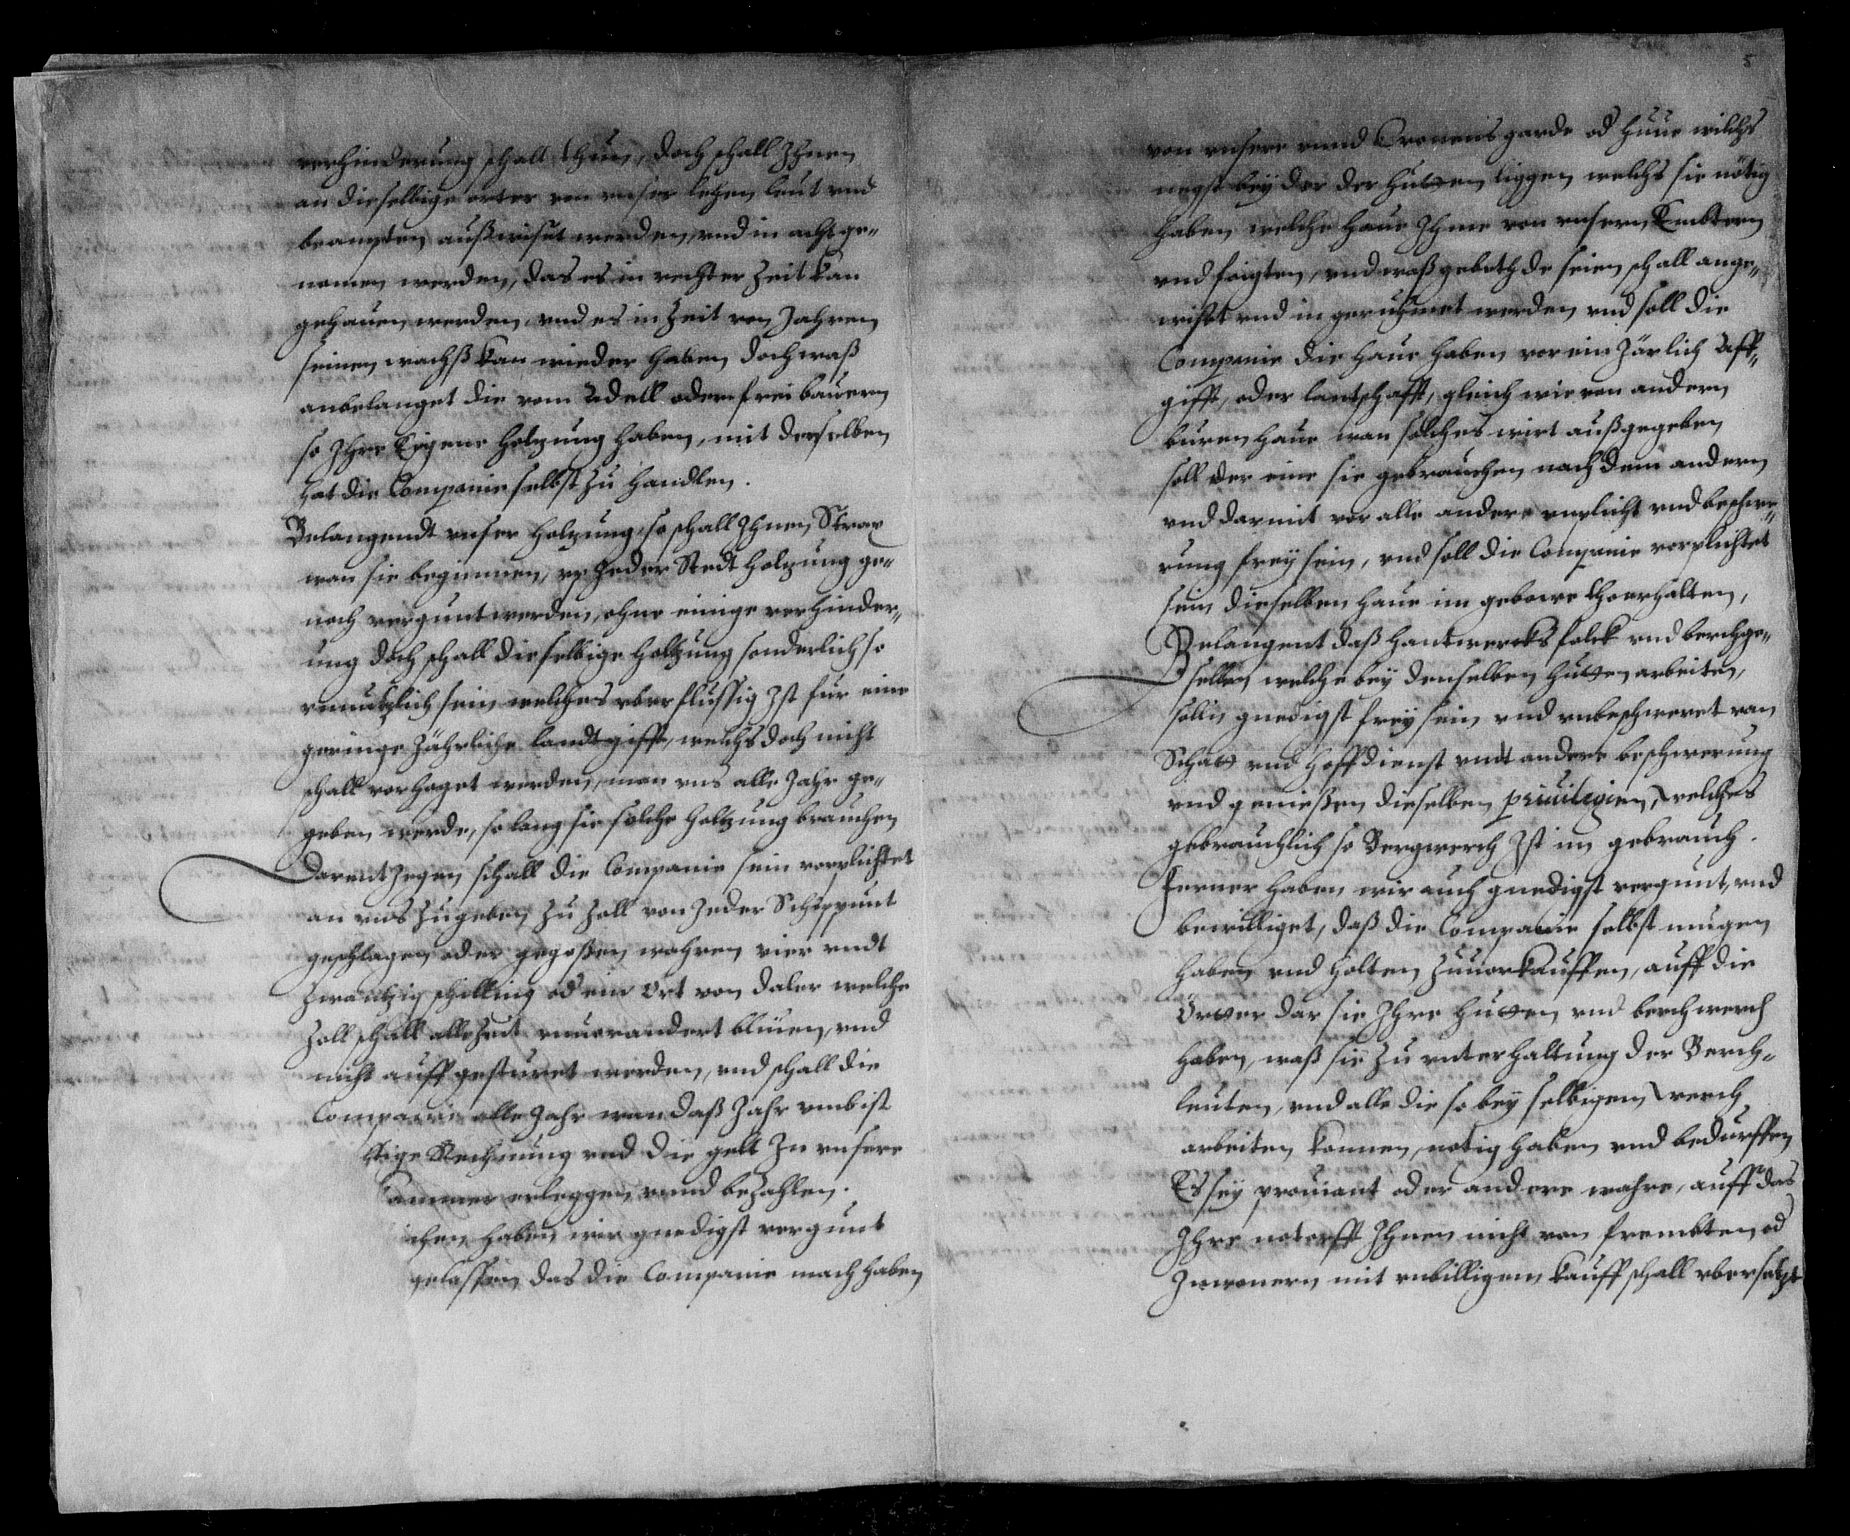 verhinderung schall thun, doch schall Ihnen
an dieselbige orter von unser lehen leut und
beampten außwiset werden, und in acht ge-
nomen werden, das es in rechter Zeit kan
gehauen werden und es in Zeit von Jahren
seinen wachß kan wieder haben, doch waß
anbelanget die vom Adell oder frei bauern
so Ihre Eigene Holzung haben, mit derselben
hat die Companie selbst zu handlen.
Belangendt unser holzung, so schall Ihnen, Strax
wan sie beginnen, up Jeder Stedt holzung ge-
noch vergunt werden, ohne einige verhinder-
ung doch schall dieselbige holtzung sonderlich so
unnutzlich sein, welches uberflussig Ist fur eine
geringe Jährliche landtgifft, welchs doch nicht
schall vorhoget werden, man uns alle Jahr ge-
geben werde, so lang sie solche holtzung brauchen
Darentjegen schall die Companie sein vorplichtet
an uns zugeben zu Zoll von Jeder Schippunt
geschlagen oder gegoßen wahren vier undt
zwantzig schilling od ein Ort von daler welche
Zoll schall allezeit unuorandert bliuen, und
nicht auffgesturet werden, und schall die
Companie alle Jahr wan daß Jahr umb ist
tige Rechnung und die gelt Zu unsere
ammer erleggen unnd bezahlen.
chen haben wir gnedigst vergunt
gelassen das die Companie mach haben
5
von unsere unnd Cronens garde od Huue wilchs
negst bey der der Hutten liggen, welchs sie nötig
haben, welche Haue Ihme von unsern Embtern
und foigten, und waß gebethde seien schall ange-
wist und in geruhmet werden und soll die
Companie die Haue haben vor ein Järlich Aff-
gifft, oder lantschafft, gleich wie von andern
buren Haue wan solches wirt außgegeben
soll der eine sie gebrauchen nach dem andern
und darmit vor alle andere unplicht und beschwe-
rung frey sein, und soll die Companie vorplichtet
sein dieselben Haue im gebowe tho erhalten,
Belangent daß hantwercks folck und berchge-
sellen, welche bey denselben Hutten arbeiten,
sollen gnedigst frey sein und unbeschweret van
Schatt und Hoffdienst undt andere beschwerung
und genießen dieselben priuilegien, welches
gebrauchlich so Bergwerch Ist im gebrauch.
Ferner haben wir auch gnedigst vergunt, und
bewilliget, daß die Companie selbst mugen
haben und holten Zuuorkauffen, auff die
Örtter dar sie Ihre Hutten und berchwerch
haben, waß sie zu unterhaltung der Berch-
leuten, und alle die so bey selbigen werch
arbeiten konnen, notig haben und bedurffen
Es sey prouiant oder andere wahre, auff das
Ihre notorfft Ihnen nicht von frembten od
Inwonern mit unbilligem kauff schall ubersetzt